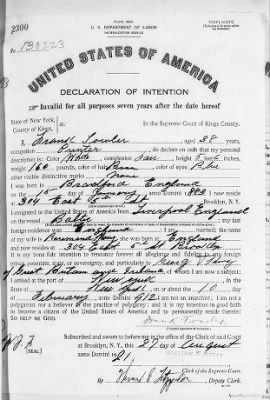 2300
U. S. DEPARTMENT OF LABOR
NATURALIZATION SERVICE
TRIPLICATE
No. 130223
UNITED STATES OF AMERICA
DECLARATION OF INTENTION
Invalid for all purposes seven years after the date hereof
State of New York,
County of Kings,
In the Supreme Court of Kings County.
I, Frank aged 38 years,
occupation Printer do declare on oath that my personal
description is: Color White complexion Fair height 5 feet inches
weight 160 pounds, color of hair color of eyes
other visible distinctive marks None
I was born in Bradford England
on the 15 day of anno Domini I now reside
at 304 East 5th St Brooklyn, N.Y.
I emigrated to the United States of America from Liverpool England
on the vessel my last
foreign residence was England
my wife is England
and now resides at 304 East 5th St
It is my bona fide intention to renounce forever all allegiance and fidelity to any foreign
prince, potentate, state, or sovereignty, and particularly to George V King
of Great Britain and Ireland of whom I am now a subject; I
arrived at the port of New York
State of New York on or about the 10 day
of February anno Domini 1912 I am not an anarchist; I am not a
polygamist nor a believer in the practice of polygamy; and it is my intention in good faith
to become a citizen of the United States of America and to permanently reside therein:
SO HELP ME GOD.
Subscribed and sworn to before me in the office of the Clerk of said Court
at Brooklyn, N. Y., this 29 day of August
[SEAL] anno Domini 1921
Clerk of the Supreme Court.
By Deputy Clerk.